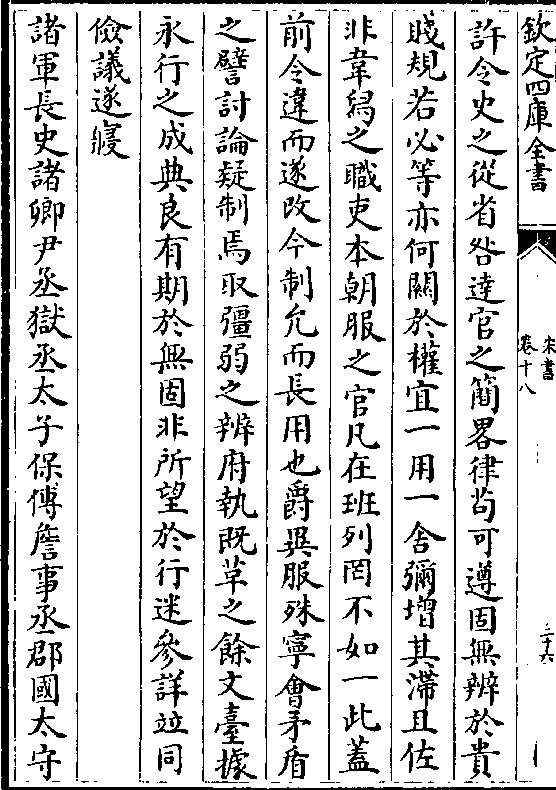 欽定四庫全書
宋書
卷十八
二十六
許令史之從省咎達官之簡畧律茍可遵固無辨於貴
賤規若必等亦何關於權宜一用一舍彌增其滯且佐
非韋舄之職吏本朝服之官凡在班列罔不如一此蓋
前令違而遂改今制允而長用也爵異服殊寧會矛盾
之譬討論疑制焉取彊弱之辨府執既草之餘文臺據
永行之成典良有期於無固非所望於行迷參詳竝同
儉議遂寢
諸軍長史諸卿尹丞獄丞太子保傅詹事丞郡國太守